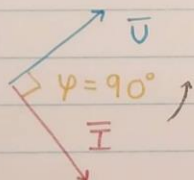 U̅
φ = 90°
I̅